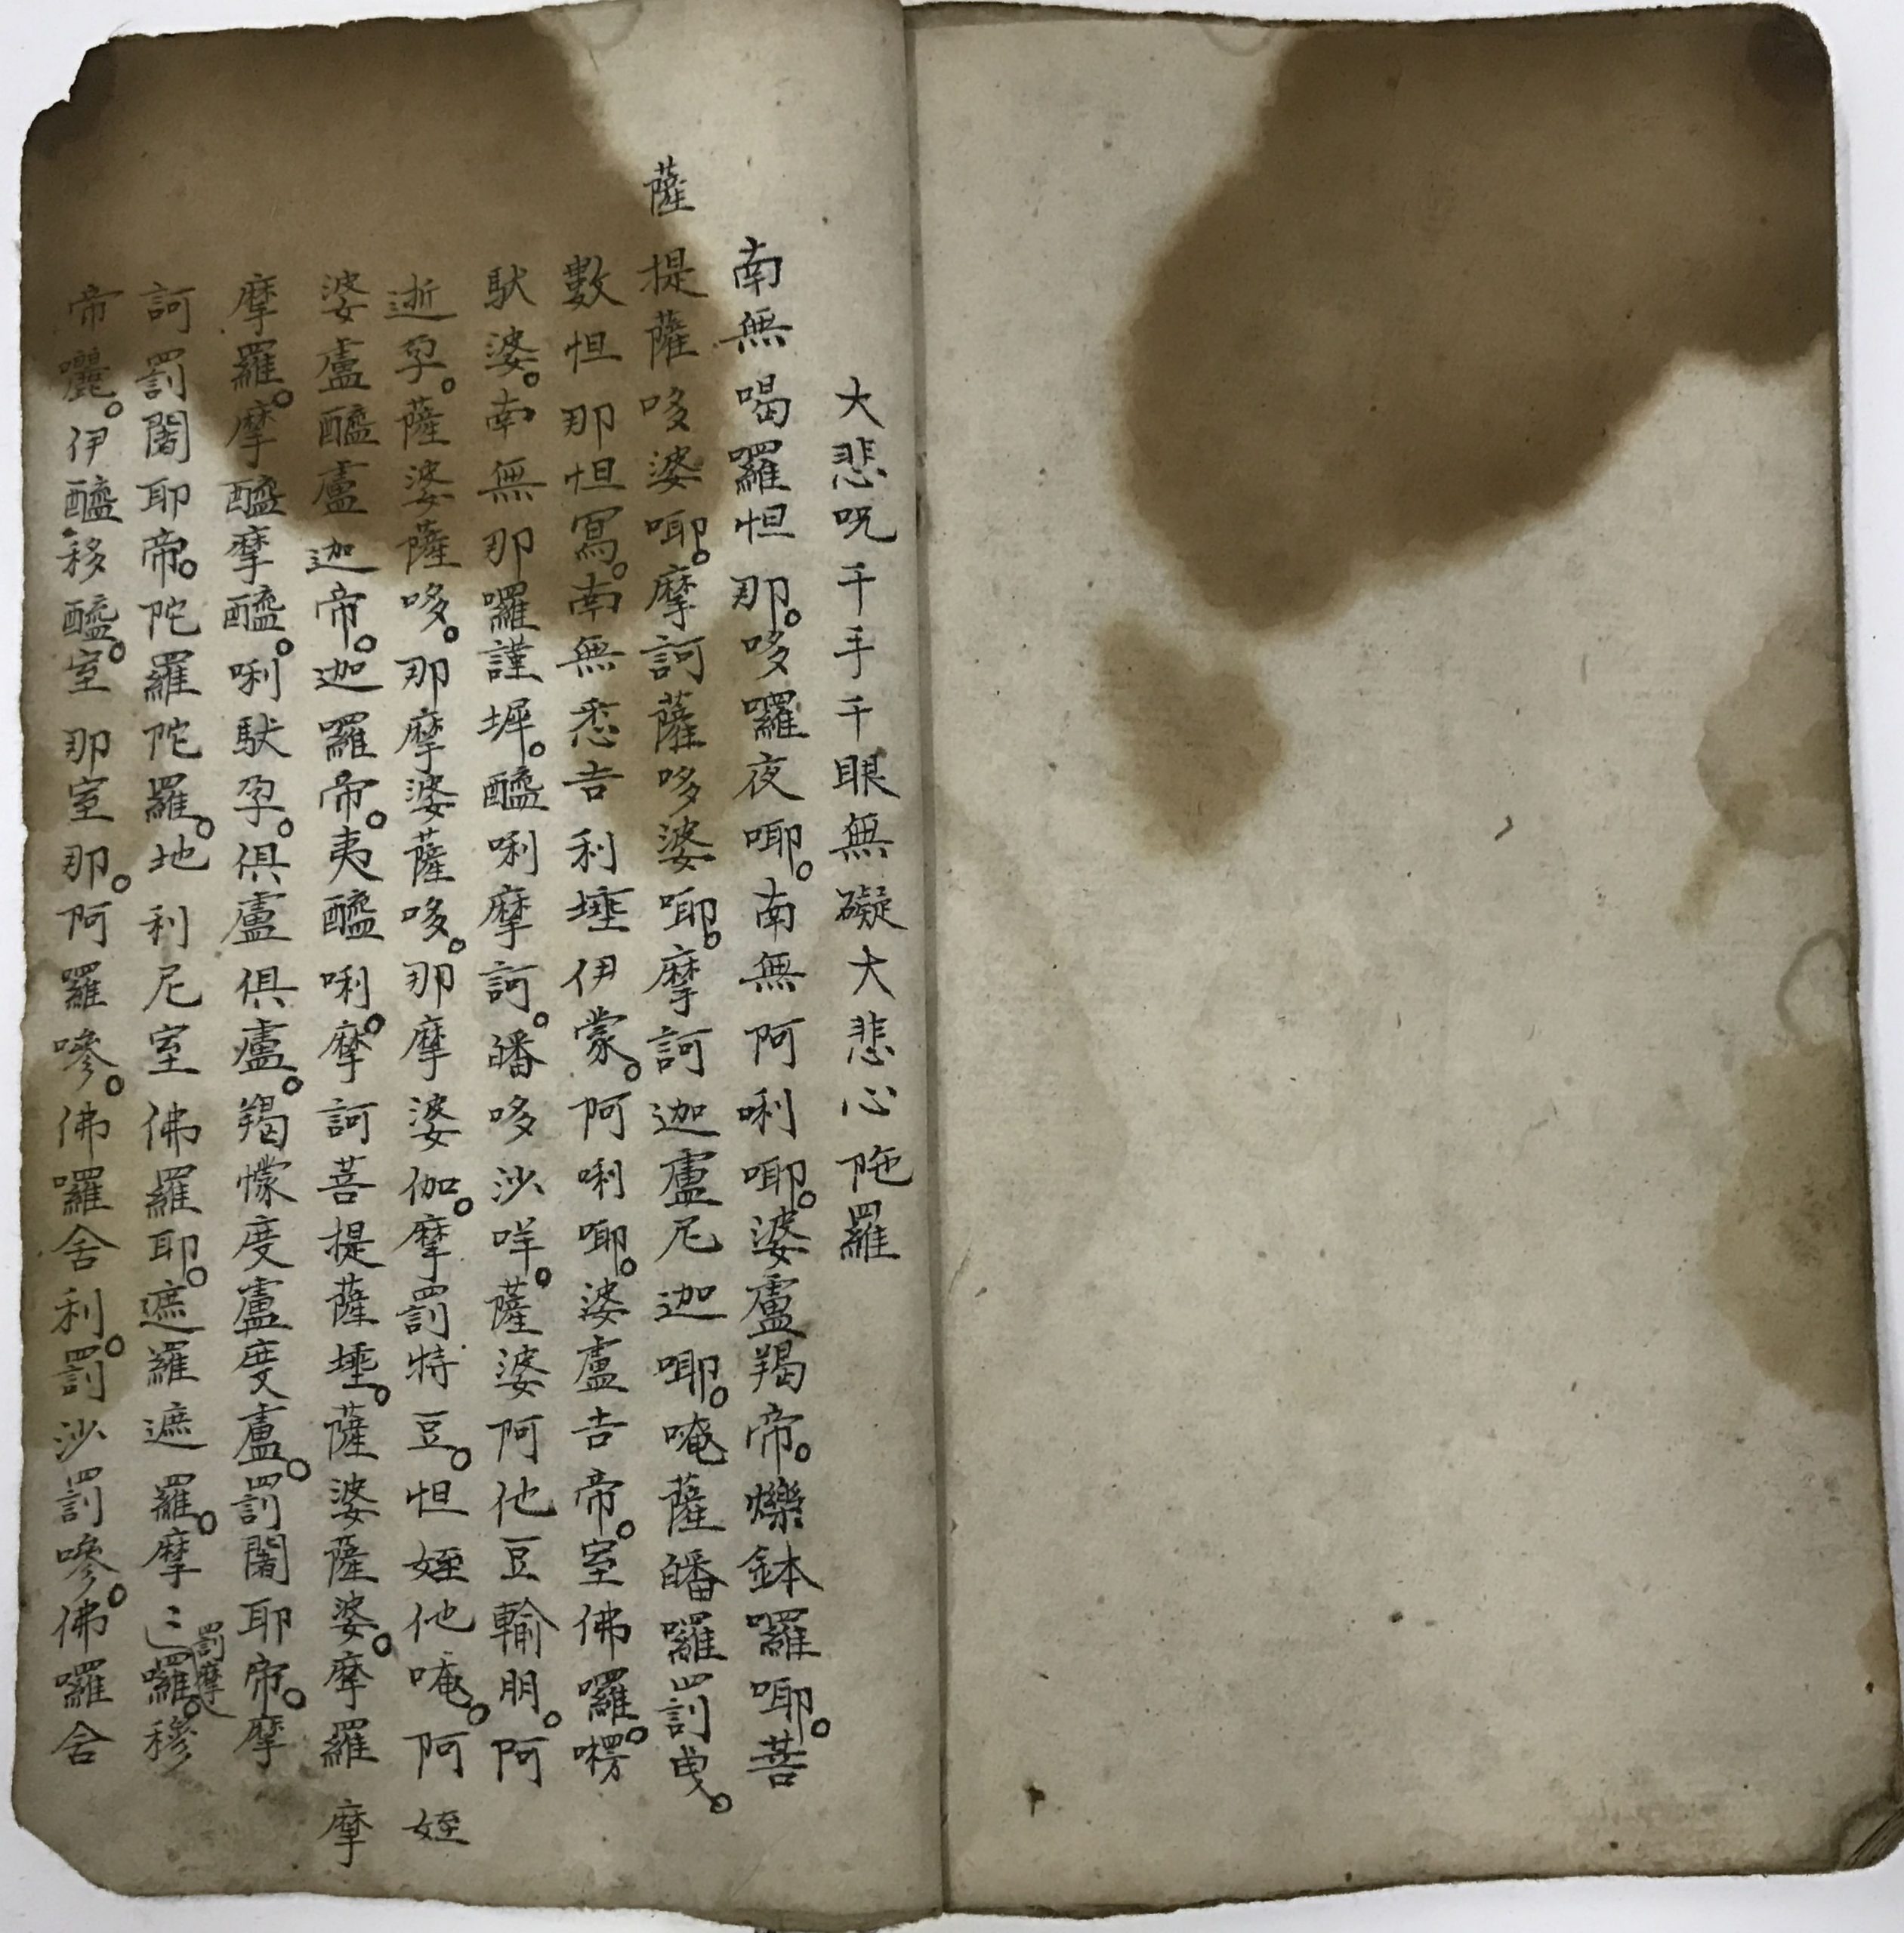 大悲呪千手千眼無礙大悲心陁羅
南無喝囉怛那。哆囉夜㖿。南無阿唎㖿。婆盧羯帝。爍鉢囉㖿。菩
薩提薩哆婆㖿。摩訶薩哆婆㖿。摩訶迦盧尼迦㖿。唵薩皤囉罰曳。
數怛那怛寫。南無悉吉利埵伊蒙。阿唎㖿。婆盧吉帝。室佛囉。楞
馱婆。南無那囉謹墀。醯唎摩訶。皤哆沙咩。薩婆阿他豆輸朋。阿
逝孕。薩婆薩哆。那摩婆薩哆。那摩婆伽。摩罰特豆。怛姪他唵。阿姪
婆盧醯盧迦帝。迦羅帝。夷醯唎。摩訶菩提薩埵。薩婆薩婆。摩羅摩
摩羅。摩摩醯摩醯。唎馱孕。俱盧俱盧。羯懞度盧度盧。罰闍耶帝。摩
訶罰闍耶帝。陀羅陀羅。地利尼室佛羅耶。遮羅遮羅。摩〻囉。穆
罰摩
帝囇。伊醯移醯。室那室那。阿羅嘇。佛囉舍利。罰沙罰嘇。佛囉舍